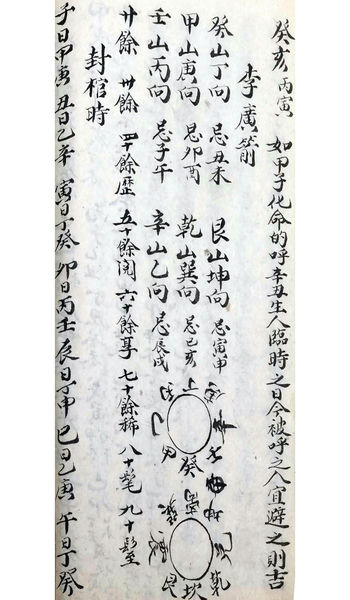 癸亥 丙寅 如甲子化命的呼辛丑生人臨時之日令被呼之人宜避之則吉
李廣箭
癸山丁向 忌丑未 艮山坤向 忌寅申
甲山庚向 忌卯酉 乾山巽向 忌巳亥
壬山丙向 忌子午 辛山乙向 忌辰戌
廿餘 卅餘 四十餘歷 五十餘閱 六十餘享 七十餘稀 八十髦 九十
封棺時
子日甲庚 丑日乙辛 寅日丁癸 卯日丙壬 辰日丁甲 巳日乙庚 午日丁癸